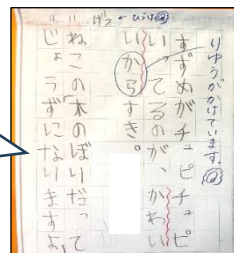 りゆうがかけています。
すずめがチュピチュピ
いってるのが、かわい
いからすき。
ねこの木のぼりだって
じょうずになりますよ